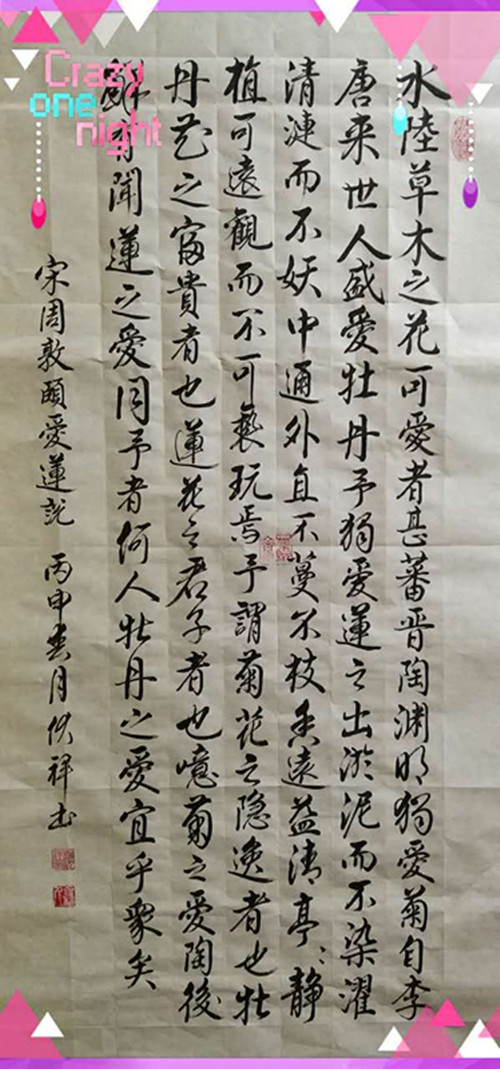 Crazy
one
night
水陸草木之花可愛者甚蕃晋陶渊明獨愛菊自李
唐来世人盛愛牡丹予獨愛蓮之出淤泥而不染濯
清漣而不妖中通外直不蔓不枝香遠益清亭〻静
植可遠觀而不可褻玩焉予謂菊花之隐逸者也牡
丹花之富貴者也蓮花之君子者也噫菊之愛陶後
鮮有聞蓮之愛同予者何人牡丹之愛宜乎衆矣
宋周敦頤愛蓮説 丙申 月 祥书